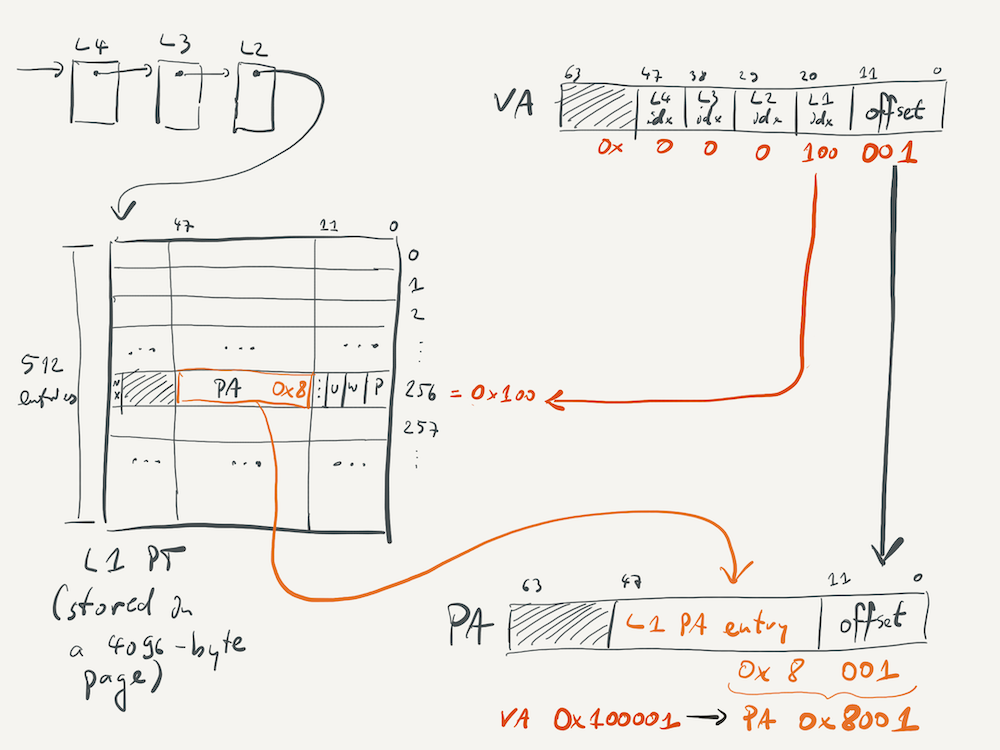 L4 L3 L2
63 47 38 29 20 11 0
VA L4 idx L3 idx L2 idx L1 idx offset
0x 0 0 0 100 001
47 11 0
0
1
2
... ... ... ⋮
512 entries
NX PA 0x8 ⋮ U W P 256 = 0x100
257
... ... ... ⋮
L1 PT
(stored in
a 4096-byte
page)
63 47 11 0
PA L1 PA entry offset
0x 8 001
VA 0x100001 → PA 0x8001